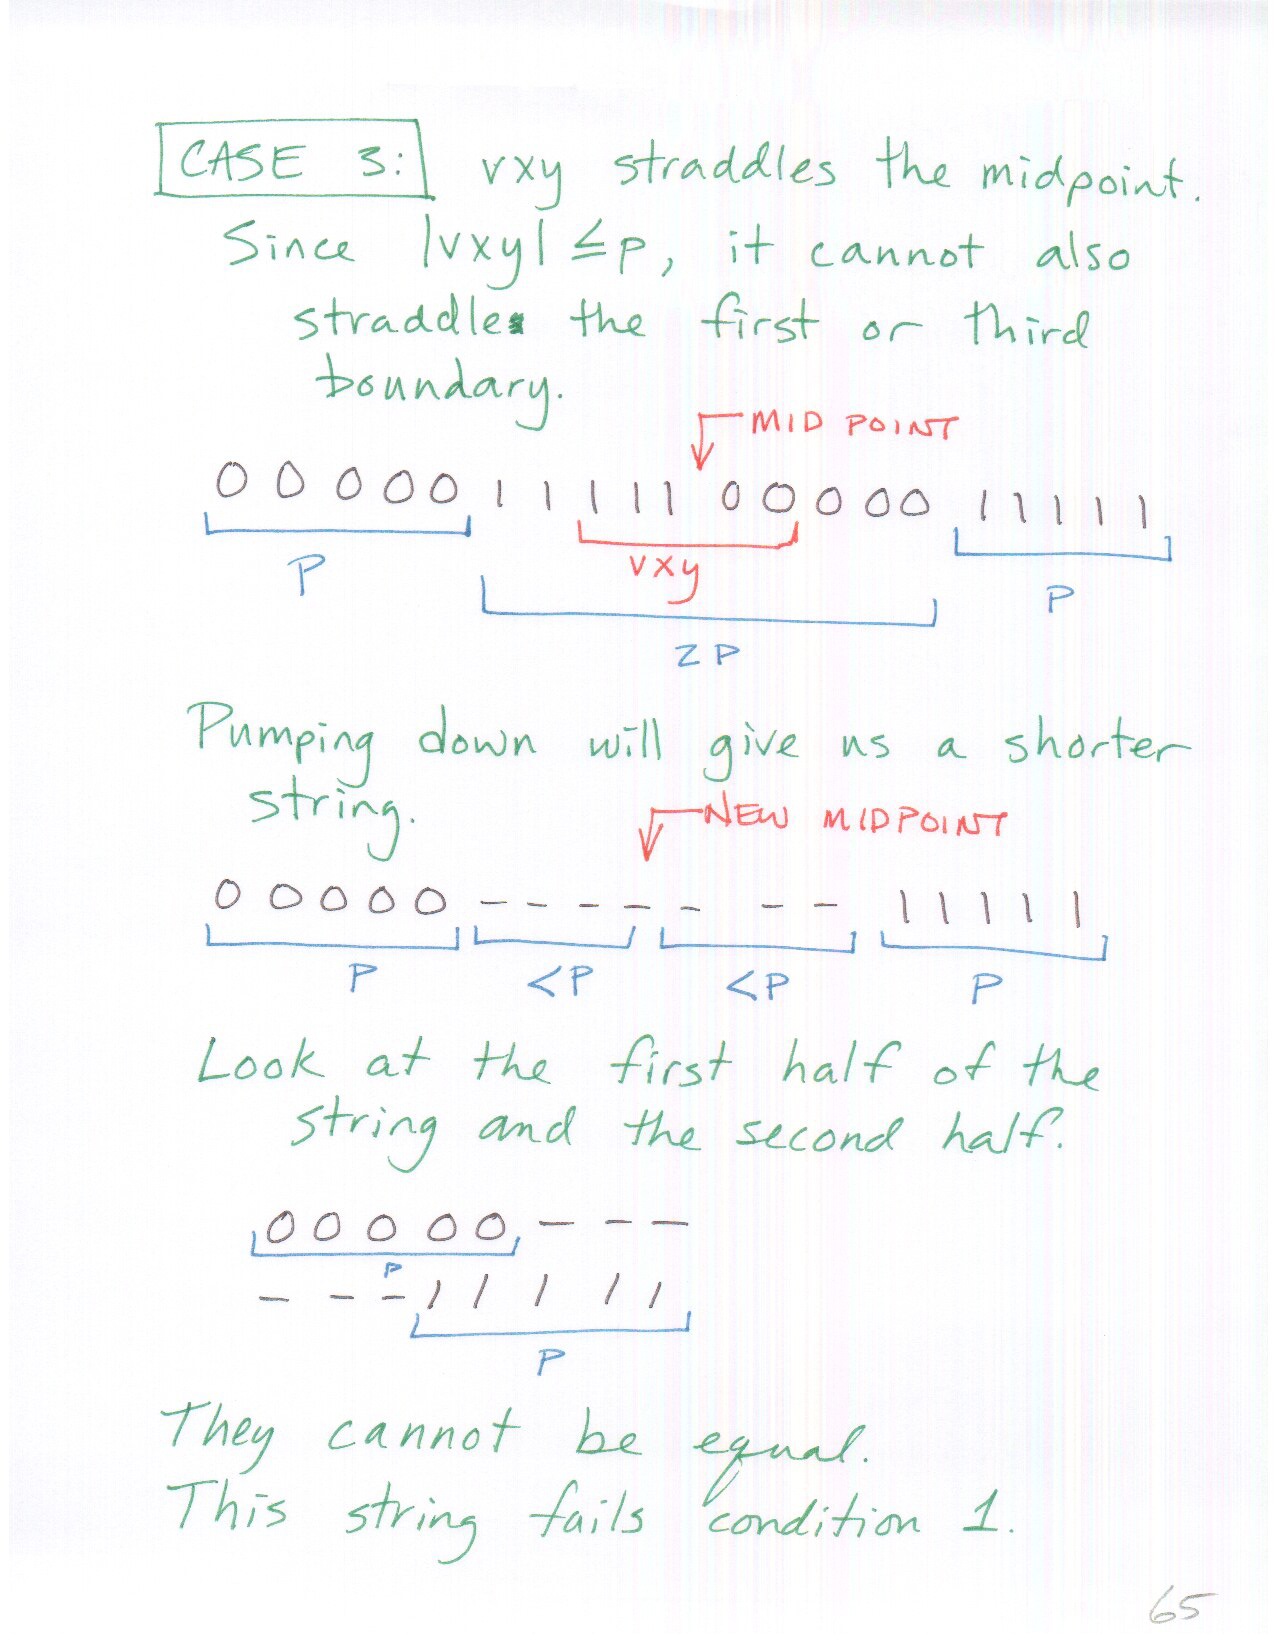 CASE 3: vxy straddles the midpoint.
Since |vxy| ≤ p, it cannot also
straddle the first or third
boundary.
MID POINT
0 0 0 0 0 1 1 1 1 1 0 0 0 0 0 1 1 1 1 1
P vxy P
2P
Pumping down will give us a shorter
string.
NEW MIDPOINT
0 0 0 0 0 - - - - - - - 1 1 1 1 1
P <P <P P
Look at the first half of the
string and the second half.
0 0 0 0 0 - - -
P
- - - 1 1 1 1 1
P
They cannot be equal.
This string fails condition 1.
65